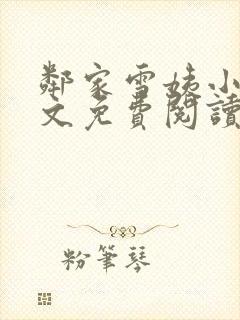 鄰家雪姨小
文免費閱讀
粉筆琴